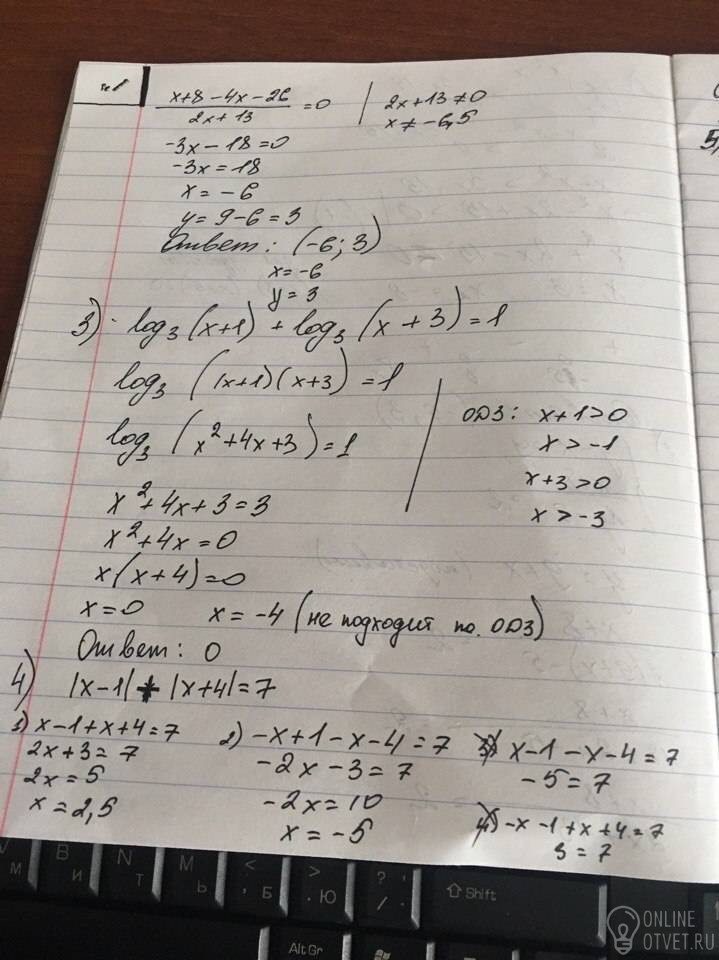 x+8-4x-26 / 2x+13 = 0 | 2x+13≠0
x≠-6,5
-3x-18=0
-3x=18
x=-6
y=9-6=3
Ответ: (-6; 3)
x=-6
y=3
3) log₃(x+1) + log₃(x+3)=1
log₃((x+1)(x+3))=1
log₃(x²+4x+3)=1
x²+4x+3=3
x²+4x=0
x(x+4)=0
x=0 x=-4 (не подходит по. ОДЗ)
ОДЗ: x+1>0
x>-1
x+3>0
x>-3
Ответ: 0
4) |x-1|+|x+4|=7
1) x-1+x+4=7
2x+3=7
2x=5
x=2,5
2) -x+1-x-4=7
-2x-3=7
-2x=10
x=-5
3) x-1-x-4=7
-5=7
4) -x-1+x+4=7
3=7
5)
V М
B И
N Т
M Ь
< , Б
> . Ю
? / .
⇧ Shift
Alt Gr
ONLINE
OTVET.RU